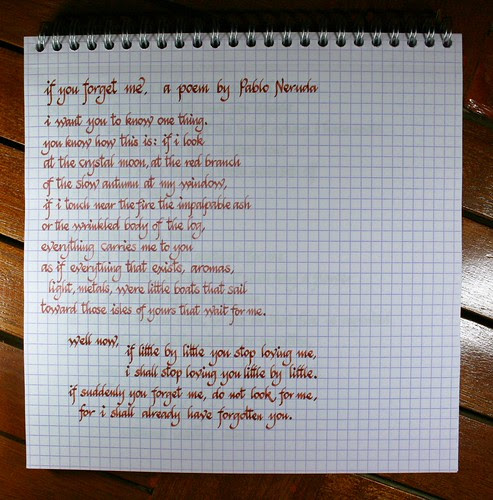 if you forget me?, a poem by Pablo Neruda
i want you to know one thing.
you know how this is: if i look
at the crystal moon, at the red branch
of the slow autumn at my window,
if i touch near the fire the impalpable ash
or the wrinkled body of the log,
everything carries me to you
as if everything that exists, aromas,
light, metals, were little boats that sail
toward those isles of yours that wait for me.
well now,
if little by little you stop loving me,
i shall stop loving you little by little.
if suddenly you forget me, do not look for me,
for i shall already have forgotten you.